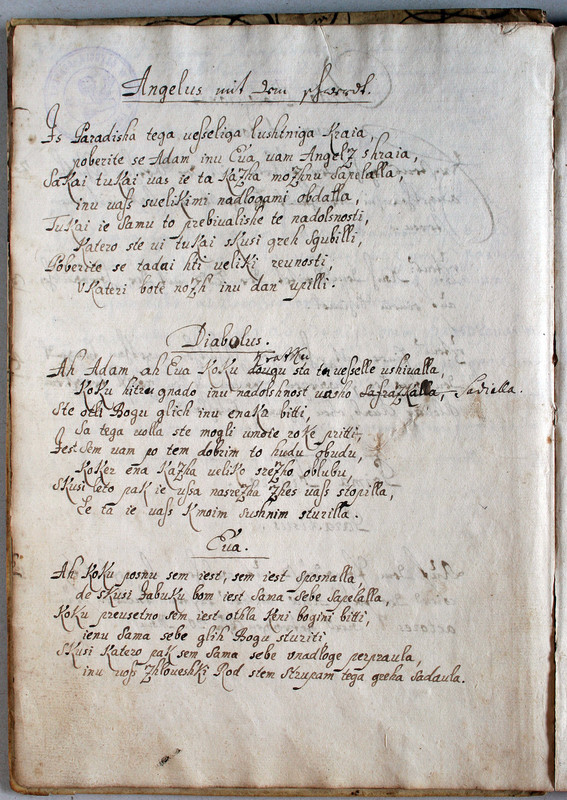 Angelus mit dem schwerdt.
Is Paradisha tega vesseliga lushtniga Kraia,
poberite se Adam inu Eua, uam Angelz shraia,
Sakai tukai uas ie ta Kazha mozhnu Sapelalla,
inu uass suelikimi nadlogami obdalla,
Tukai ie Samu to prebivalishe te nadolsnosti,
Katero ste ui tukai skusi greh Sgubilli,
Poberite se tadai hti ueliki reunosti,
vkateri bote nozh inu dan upilli.
Diabolus.
Kratku
Ah Adam ah Eua Koku daugu sta tu uesselle ushiualla,
Koku hitru gnado inu nadolshnost Safrazkalla, Sadiella.
Ste otli Bogu glich inu enaku bitti,
Sa tega uolla ste mogli umoie roke pritti,
Jest Sem uam po tem dobrim to hudu obudu,
Koker ena Kazha ueliko srezho oblubu
Skusi leto pak ie ussa nasrezha Zhes uass stopilla,
Ke ta ie uass Kmoim sushnim sturilla.
Eua.
Ah Koku posnu sem iest, sem iest sposnalla,
de skusi Jabuku bom iest Sama Sebe Sapelalla,
Koku preusetno sem iest othla Keni bogini bitti,
ienu Sama sebe glih Bogu sturiti
Skusi Katero pak sem Sama sebe vnadloge perpraula,
inu uoss Zhloueshki Rod stem Strupam tega greha Sadaula.